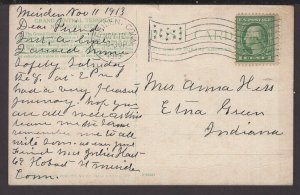 Meriden Nov 11 1913
Dear Friend
Just a line
I arrived home
safely Saturday
the 8. at 2 P.M.
had a very pleasant
journey hope you
are all well as this
leaves me the same
remember me to all
with love as ever your
friend Mrs Julius Hast
62 Hobart St Meriden
Conn.
CARD
Mrs Anna Hess
Etna Green
Indiana